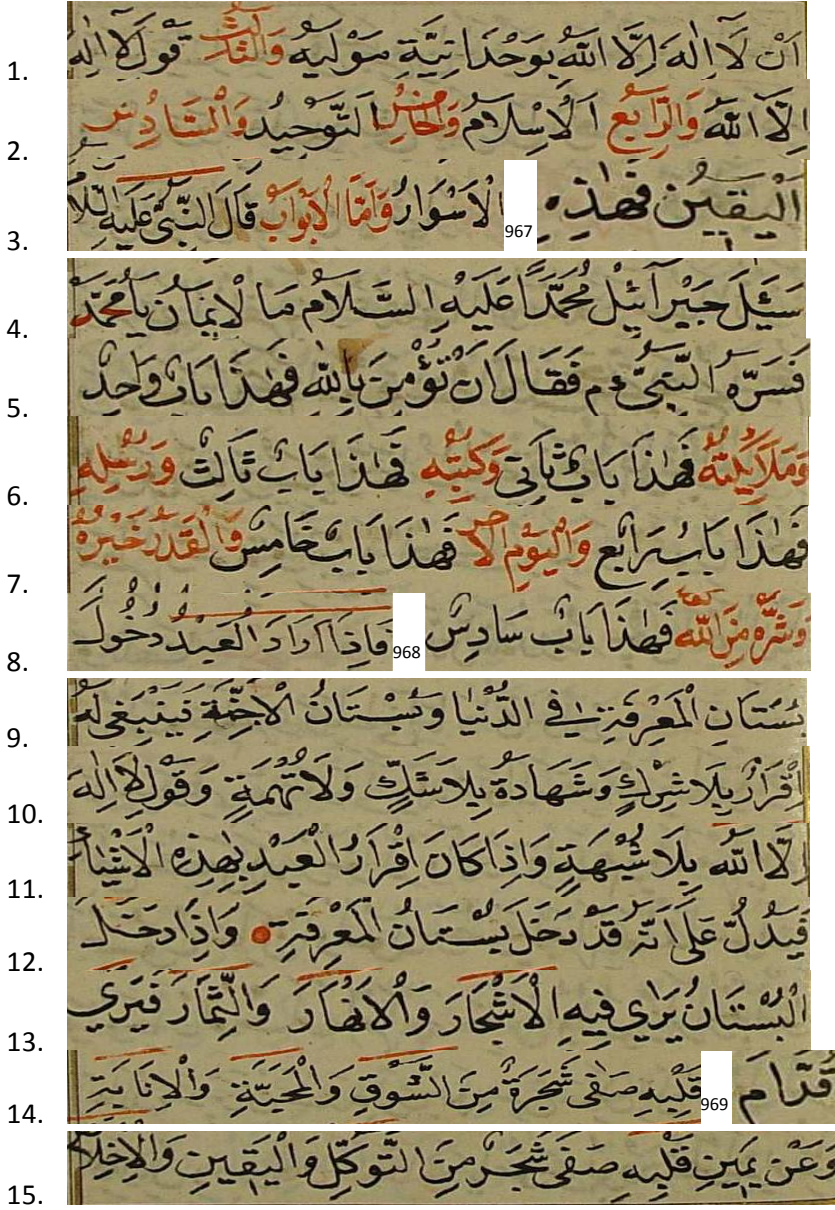 1. اَنْ لَا اِلٰهَ اِلَّا اللّٰهُ بِوَحْدَانِيَّةِ مَوْلٰيهِ وَالثَّالِثُ قَوْلُ لَا اِلٰهَ
2. اِلَّا اللّٰهُ وَالرَّابِعُ اَلْاِسْلَامُ وَالْخَامِسُ اَلتَّوْحِيدُ وَالسَّادِسُ
3. اَلْيَقِينُ فَهٰذِهِ 967 الْاَسْوَارُ وَاَمَّا الْاَبْوَابُ قَالَ النَّبِيُّ عَلَيْهِ السَّلَامُ
4. سَئَلَ جَبْرَآئِلُ مُحَمَّدًا عَلَيْهِ السَّلَامُ مَا الْاِيمَانُ يَا مُحَمَّدُ
5. فَسَرَّهُ النَّبِيُّ ءم فَقَالَ اَنْ تُؤْمِنَ بِاللّٰهِ فَهٰذَا بَابٌ وَاحِدٌ
6. وَمَلَآئِكَتِهِ فَهٰذَا بَابٌ ثَانِى وَكُتُبِهِ فَهٰذَا بَابٌ ثَالِثٌ وَرُسُلِهِ
7. فَهٰذَا بَابٌ رَابِعٌ وَالْيَوْمِ الْاٰخِرِ فَهٰذَا بَابٌ خَامِسٌ وَالْقَدَرِ خَيْرِهُ
8. وَشَرِّهِ مِنَ اللّٰهِ تعا فَهٰذَا بَابٌ سَادِسٌ 968 فَاِذَا اَرَادَ الْعَبْدُ دُخُولَ
9. بُسْتَانِ الْمَعْرِفَةِ فِي الدُّنْيَا وَبُسْتَانُ الْاَجِنَّةِ فَيَنْبَغِى لَهُ
10. اِقْرَارٌ بِلَا شِرْكٍ وَشَهَادَةٌ بِلَا شَكٍّ وَلَا تُهْمَةٍ وَقَوْلُ لَا اِلٰهَ
11. اِلَّا اللّٰهُ بِلَا شُبْهَةٍ وَاِذَا كَانَ اِقْرَارُ الْعَبْدِ بِهٰذِهِ الْاَشْيَاءِ
12. فَيَدُلُّ عَلٰى اَنَّهُ قَدْ دَخَلَ بُسْتَانُ الْمَعْرِفَةِ وَاِذَا دَخَلَ
13. الْبُسْتَانُ يَرٰاي فِيهِ الْاَشْجَارَ وَالْاَنْهَارَ وَالثِّمَارَ فَيَرٰي
14. قُدَّامَ 969 قَلْبِهِ صَفٰى شَجَرَةً مِنَ الشَّوْقِ وَالْمَحَبَّةِ وَالْاِنَابَةِ
15. وَعَنْ يَمِينِ قَلْبِهِ صَفٰى شَجَرٍ مِنَ التَّوَكُّلِ وَالْيَقِينِ وَالْاِخْلَاصِ